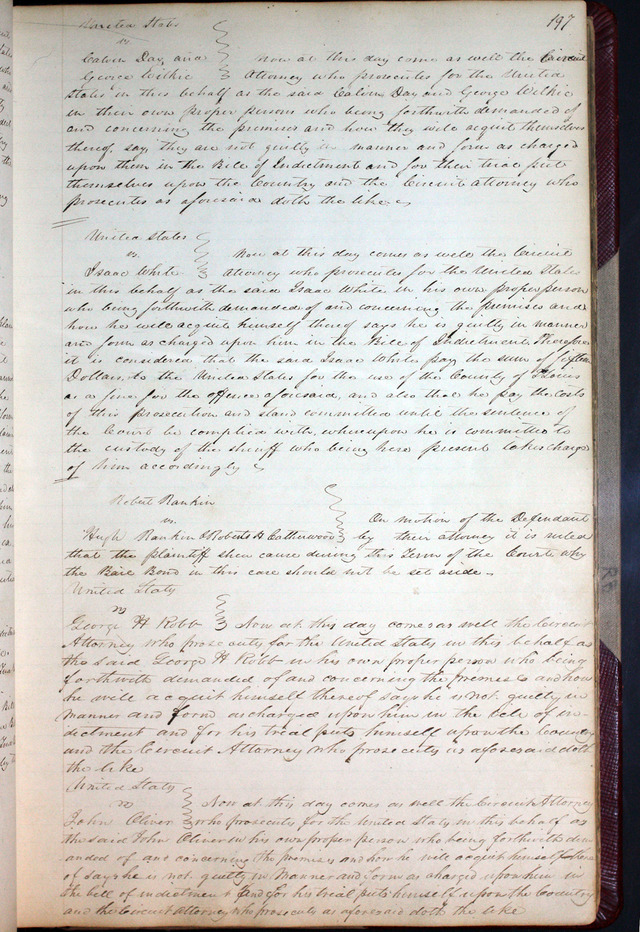 197
United States
vs
Calvin Day and Now at this day come as well the Circuit
George Wilkie Attorney who prosecutes for the United
States in this behalf as the said Calvin Day and George Wilkie
in their own proper persons who being forthwith demanded of
and concerning the premises and how they will acquit themselves
thereof say they are not guilty in manner and form as charged
upon them in the Bill of Indictment and for their trial put
themselves upon the Country and the Circuit attorney who
prosecutes as aforesaid doth the like
United States
vs. Now at this day comes as well the Circuit
Isaac White attorney who prosecutes for the United States
in this behalf as the said Isaac White in his own proper person
who being forthwith demanded of and concerning the premises and
how he will acquit himself thereof says he is guilty in manner
and form as charged upon him in the Bill of Indictment. Therefore
it is considered that the said Isaac White pay the sum of fifteen
Dollars, to the United States for the use of the County of St Louis
as a fine for the offence aforesaid, and also that he pay the costs
of this prosecution and stand committed until the sentence of
the Court be complied with, whereupon he is committed to
the custody of the sheriff who being here present takes charge
of him accordingly
Robert Rankin
vs. On motion of the Defendant
Hugh Rankin & Roberts H Catherwood by their attorney it is ruled
that the plaintiff shew cause during this Term of the Court why
the Bail Bond in this case should not be set aside.
United States
vs
George H Robb Now at this day comes as well the Circuit
Attorney who prosecutes for the United States in this behalf as
the said George H Robb in his own proper person who being
forthwith demanded of and concerning the premises and how
he will acquit himself thereof says he is not guilty in
manner and form as charged upon him in the bill of in-
dictment and for his trial puts himself upon the Country
and the Circuit Attorney who prosecutes as aforesaid doth
the like
United States
vs Now at this day comes as well the Circuit Attorney
John Oliver who prosecutes for the United States in this behalf as
the said John Oliver in his own proper person who being forthwith dem
anded of and concerning the premises and how he will acquit himself there
of says he is not guilty in Manner and form as charged upon him in
the bill of indictment and for his trial puts himself upon the Country
and the Circuit Attorney who prosecutes as aforesaid doth the like